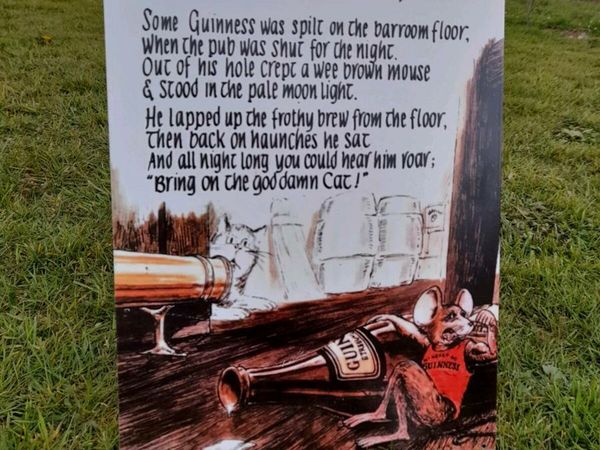 Some Guinness was spilt on the barroom floor,
When the pub was shut for the night.
Out of his hole crept a wee brown mouse
& Stood in the pale moon light.
He lapped up the frothy brew from the floor,
Then back on haunches he sat
And all night long you could hear him roar;
"Bring on the goddamn Cat!"
GUINNESS